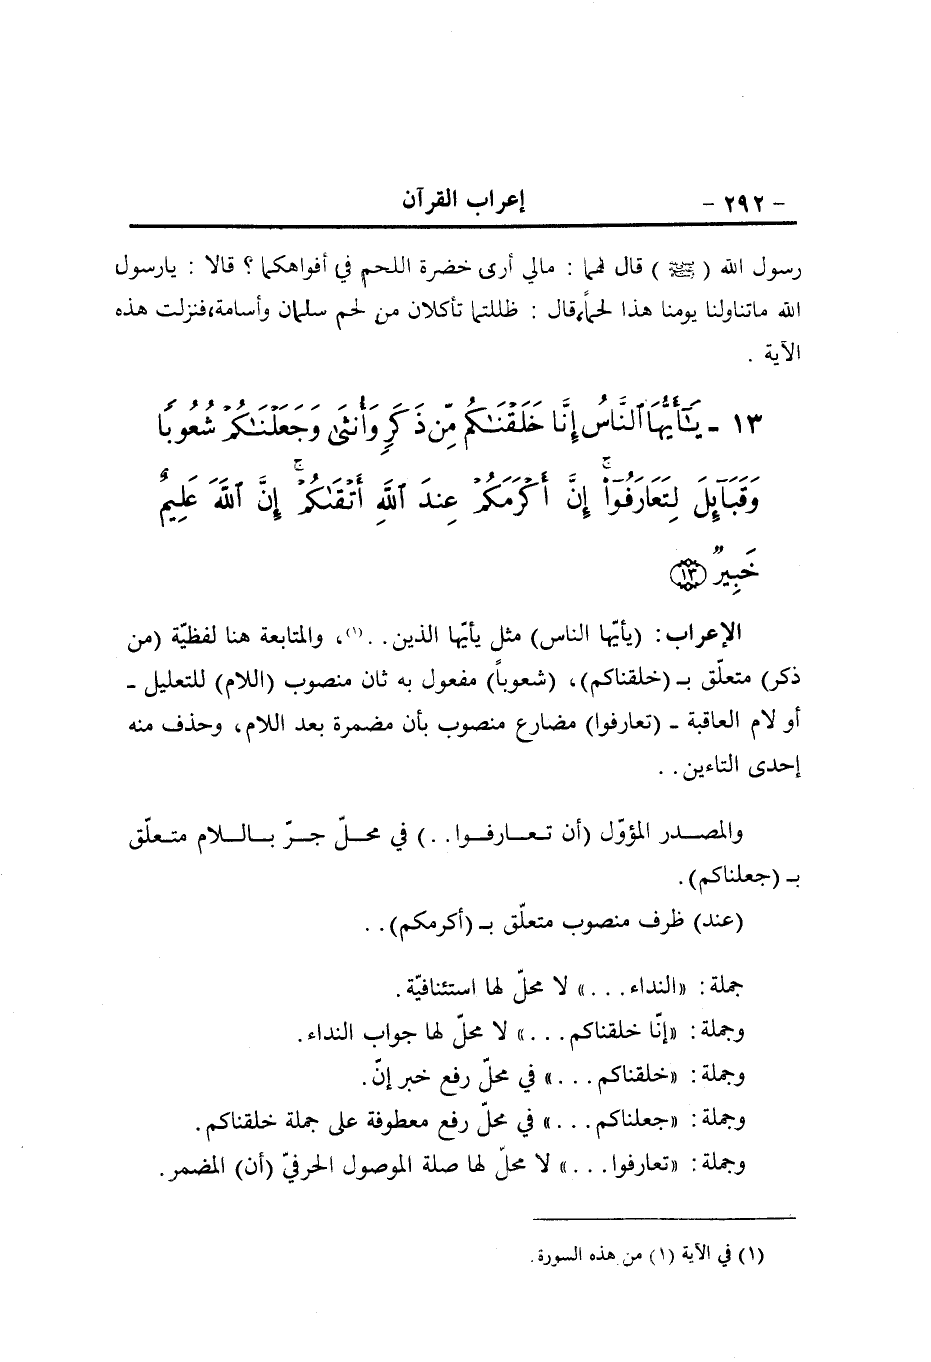 - ٢٩٢ - إعراب القرآن
رسول الله (ﷺ) قال لهما : مالي أرى خضرة اللحم في أفواهكما ؟ قالا : يارسول
الله ماتناولنا يومنا هذا لحماً،قال : ظللتما تأكلان من لحم سلمان وأسامة،فنزلت هذه
الآية .
١٣ - يَٰٓأَيُّهَا ٱلنَّاسُ إِنَّا خَلَقْنَٰكُم مِّن ذَكَرٍ وَأُنثَىٰ وَجَعَلْنَٰكُمْ شُعُوبًا
وَقَبَآئِلَ لِتَعَارَفُوٓا۟ ۚ إِنَّ أَكْرَمَكُمْ عِندَ ٱللَّهِ أَتْقَىٰكُمْ ۚ إِنَّ ٱللَّهَ عَلِيمٌ
خَبِيرٌ ﴿١٣﴾
الإعراب : (يأيّها الناس) مثل يأيّها الذين . . (١)، والمتابعة هنا لفظيّة (من
ذكر) متعلّق بـ (خلقناكم)، (شعوباً) مفعول به ثان منصوب (اللام) للتعليل -
أو لام العاقبة - (تعارفوا) مضارع منصوب بأن مضمرة بعد اللام، وحذف منه
إحدى التاءين . .
والمصدر المؤوّل (أن تعارفوا . .) في محلّ جرّ باللام متعلّق
بـ (جعلناكم).
(عند) ظرف منصوب متعلّق بـ (أكرمكم) . .
جملة : «النداء . . .» لا محلّ لها استئنافيّة .
وجملة : «إنّا خلقناكم . . .» لا محلّ لها جواب النداء .
وجملة : «خلقناكم . . .» في محلّ رفع خبر إنّ .
وجملة : «جعلناكم . . .» في محلّ رفع معطوفة على جملة خلقناكم .
وجملة : «تعارفوا . . .» لا محلّ لها صلة الموصول الحرفيّ (أن) المضمر .
(١) في الآية (١) من هذه السورة .